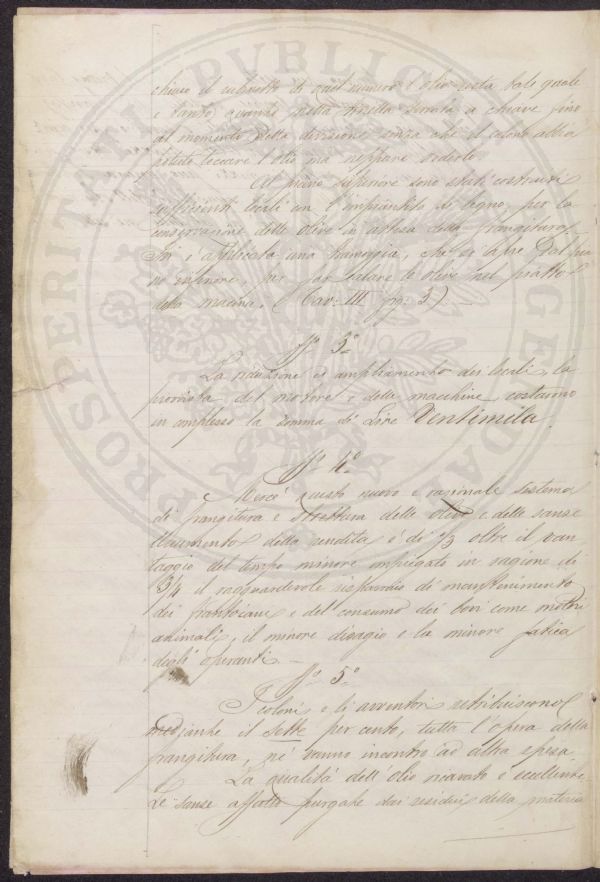 chiuso il rubinetto di quel numero l'olio resta tale quale
e tanto quanto nella tinella serrata a chiave fino
al momento della divisione senza che il colono abbia
potuto toccare l'olio ma neppure vederlo.
Al piano superiore sono stati costruiti
sufficienti locali con l'impiantito di legno per la
conservazione delle olive in attesa della frangitura.
Ivi è applicata una tramoggia, che si apre dal pia
no inferiore, per far calare le olive nel piatto
della macina. (Tav: III fig: 5).
§§º 3º
La riduzione ed ampliamento dei locali, la
provvista del motore e delle macchine costarono
in complesso la somma di Lire Ventimila.
§§º 4º
Mercè questo nuovo e razionale sistema
di frangitura e strettura delle olive e delle sanse
l'aumento della rendita è di 1/3 oltre il van
taggio del tempo minore impiegato in ragione di
3/4 il ragguardevole risparmio di mantenimento
dei frantoiani e del consumo dei bovi come motori
animali, il minore disagio e la minore fatica
degli operanti.
§§º 5º
I coloni e li avventori retribuiscono
mediante il sette per cento, tutta l'opera della
frangitura, nè vanno incontro ad altra spesa.
La qualità dell'olio ricavato è eccellente
Le sanse affatto purgate dai residui della materia
PROSPERITATI PVBLICAE AVGENDAE